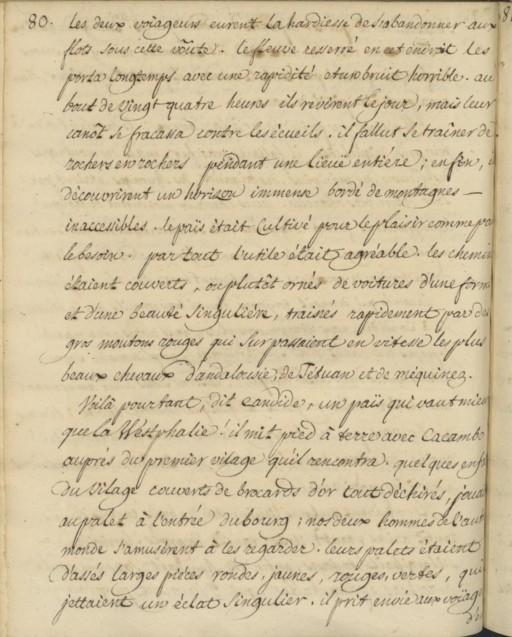 80.
les deux voïageurs eurent la hardiesse de s'abandonner aux
flots sous cette voûte. le fleuve resserré en cet endroit les
porta longtemps avec une rapidité et un bruit horrible. au
bout de vingt quatre heures ils revirent le jour, mais leur
canôt se fracassa contre les écueils. il fallut se traîner de
rochers en rochers pendant une liëuë entiére; enfin,
découvrirent un horizon immense bordé de montagnes —
inaccessibles. le païs était cultivé pour le plaisir comme po
le besoin. par tout l'utile était agréable. les chemin
étaient couverts, ou plutôt ornés de voitures d'une form
et d'une beauté singuliére, trainés rapidement par de
gros moutons rouges qui surpassaient en vitesse les plus
beaux chevaux d'andalousie, de Tétuan et de méquinez.
Voilà pourtant, dit Candide, un païs qui vaut mieu
que la Westphalie! il mit pied à terre avec Cacambo
auprés du premier vilage qu'il rencontra. quelques enf
du vilage couverts de brocards d'or tout déchirés, jouai
au palet à l'entrée du bourg; nos deux hommes de l'aut
monde s'amusèrent à les regarder. leurs palets étaient
d'assés larges piéces rondes, jaunes, rouges, vertes, qui
jettaient un éclat singulier. il prit envie aux voïag